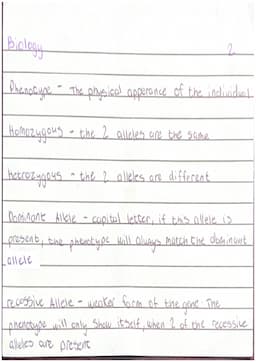 Biology 2
Phenotype - The physical apperance of the individual
Homozygous - the 2 alleles are the same
hetrozygous - the 2 alleles are different
Dominant Allele - capital letter, if this allele is
present, the phenotype will always match the dominant
allele
recessive Allele - weaker form of the gene. The
phenotype will only show itself, when 2 of the recessive
alleles are present